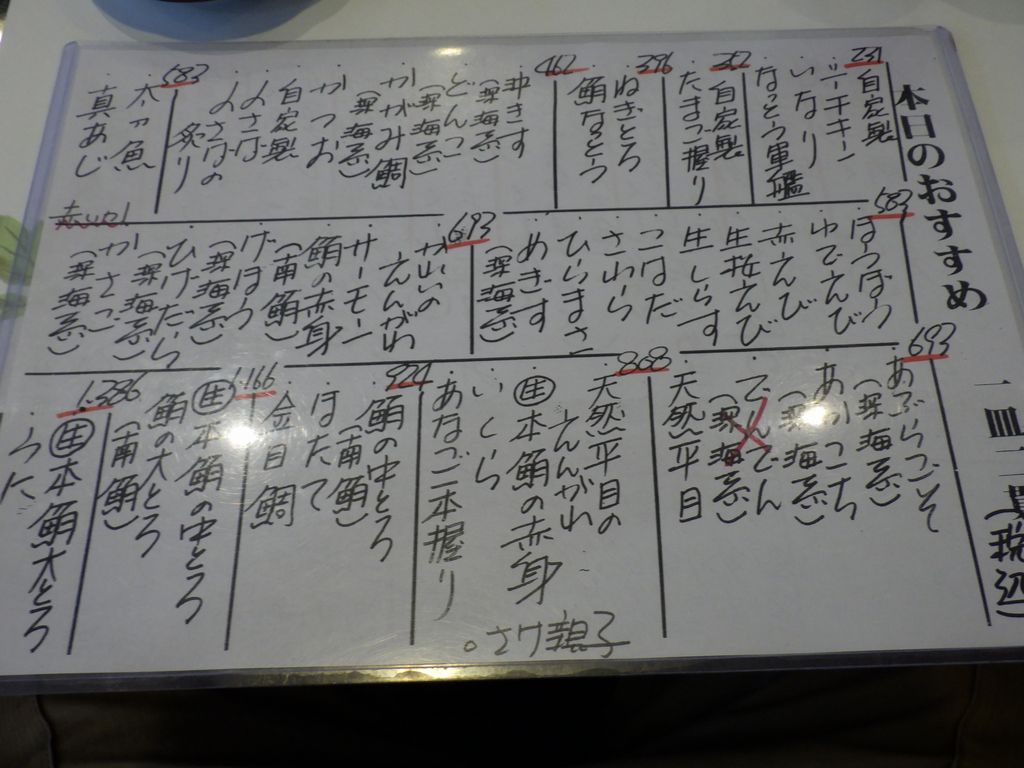 本日のおすすめ
一皿二貫
231
自家製
ツナチキン
いなり
なっとう軍艦
352
自家製
たまご握り
376
ねぎとろ
462
鮪なっとう
沖きす
(深海系)
どんこ
(深海系)
かがみ鯛
(深海系)
かつお
自家製
〆さば
〆さばの
炙り
583
太刀魚
真あじ
583
ほうぼう
ゆでえび
赤えび
生桜えび
生しらす
こはだ
さわら
ひらまさ
めぎす
(深海系)
693
かれいの
えんがわ
サーモン
鮪の赤身
(南鮪)
げほう
(深海系)
ひげだら
(深海系)
かさご
(深海系)
693
あぶらごそ
(深海系)
あかごち
(深海系)
でんでん
(深海系)
天然平目
808
天然平目の
えんがわ
㊓本鮪の赤身
いくら
あなご一本握り
さけ親子
924
鮪の中とろ
(南鮪)
ほたて
金目鯛
1.166
㊓本鮪の中とろ
鮪の大とろ
(南鮪)
1.386
㊓本鮪大とろ
うに